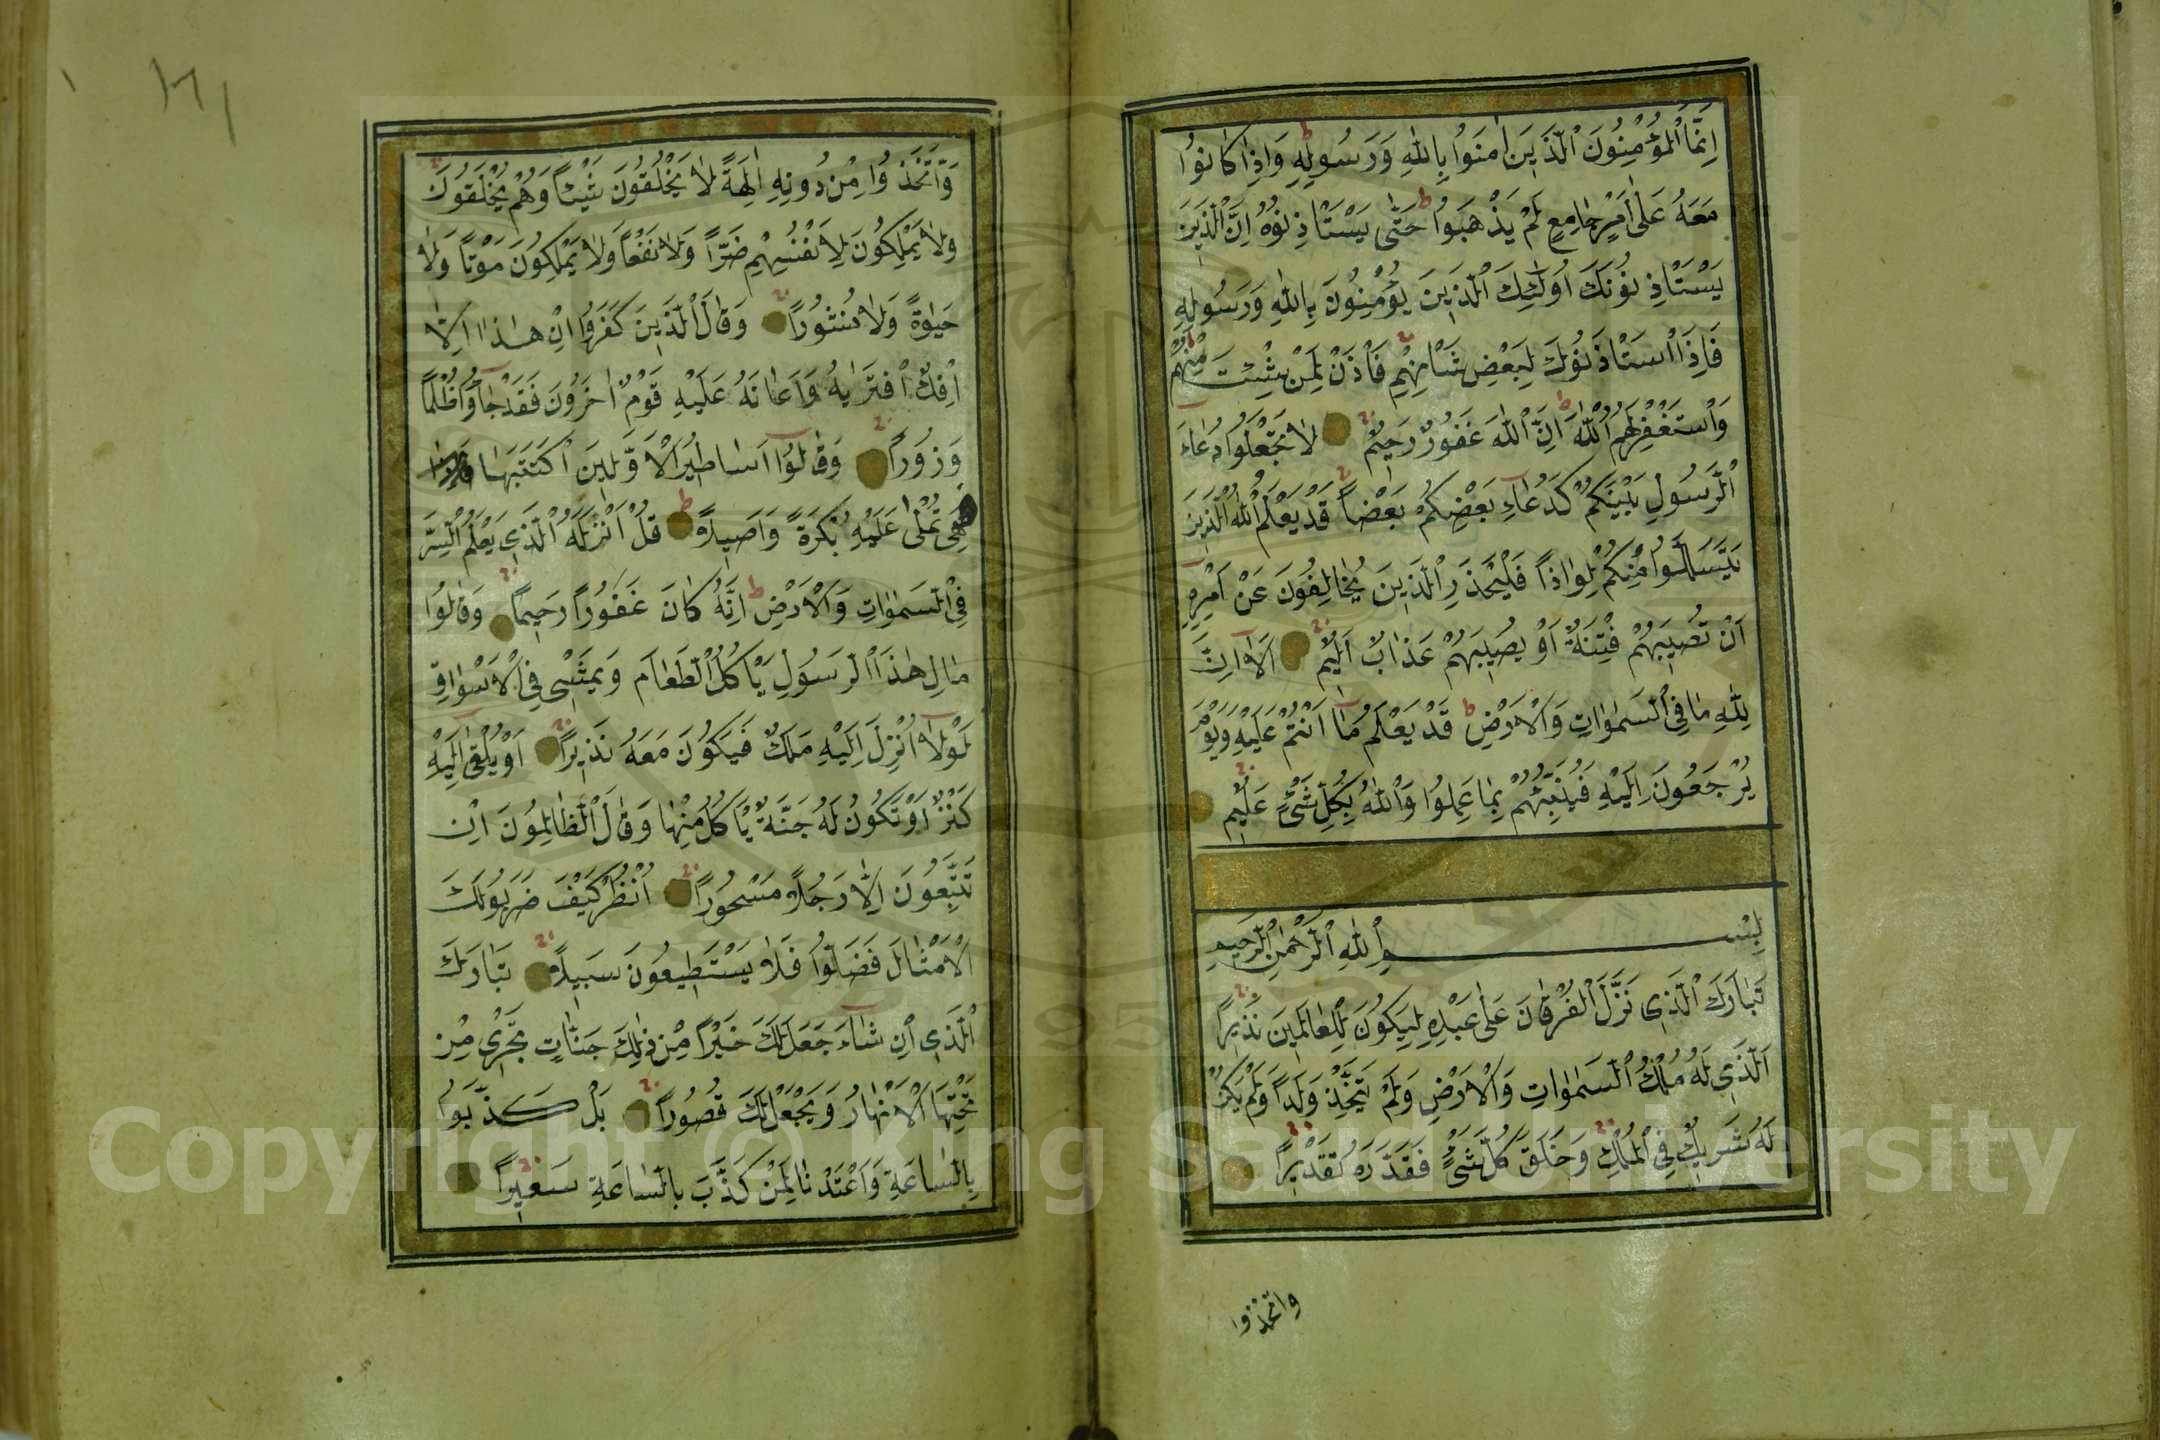 اِنَّمَا الْمُؤْمِنُونَ الَّذِينَ اٰمَنُوا بِاللّٰهِ وَرَسُولِهِ وَاِذَا كَانُوا
مَعَهُ عَلٰى اَمْرٍ جَامِعٍ لَمْ يَذْهَبُوا حَتّٰى يَسْتَاْذِنُوهُ اِنَّ الَّذِينَ
يَسْتَاْذِنُونَكَ اُولٰئِكَ الَّذِينَ يُؤْمِنُونَ بِاللّٰهِ وَرَسُولِهِ
فَاِذَا اسْتَاْذَنُوكَ لِبَعْضِ شَاْنِهِمْ فَاْذَنْ لِمَنْ شِئْتَ مِنْهُمْ
وَاسْتَغْفِرْ لَهُمُ اللّٰهَ اِنَّ اللّٰهَ غَفُورٌ رَحِيمٌ لَا تَجْعَلُوا دُعَاءَ
الرَّسُولِ بَيْنَكُمْ كَدُعَاءِ بَعْضِكُمْ بَعْضًا قَدْ يَعْلَمُ اللّٰهُ الَّذِينَ
يَتَسَلَّلُونَ مِنْكُمْ لِوَاذًا فَلْيَحْذَرِ الَّذِينَ يُخَالِفُونَ عَنْ اَمْرِهِ
اَنْ تُصِيبَهُمْ فِتْنَةٌ اَوْ يُصِيبَهُمْ عَذَابٌ اَلِيمٌ اَلَا اِنَّ
لِلّٰهِ مَا فِي السَّمٰوَاتِ وَالْاَرْضِ قَدْ يَعْلَمُ مَا اَنْتُمْ عَلَيْهِ وَيَوْمَ
يُرْجَعُونَ اِلَيْهِ فَيُنَبِّئُهُمْ بِمَا عَمِلُوا وَاللّٰهُ بِكُلِّ شَيْءٍ عَلِيمٌ
بِسْمِ اللّٰهِ الرَّحْمٰنِ الرَّحِيمِ
تَبَارَكَ الَّذِي نَزَّلَ الْفُرْقَانَ عَلٰى عَبْدِهِ لِيَكُونَ لِلْعَالَمِينَ نَذِيرًا
اَلَّذِي لَهُ مُلْكُ السَّمٰوَاتِ وَالْاَرْضِ وَلَمْ يَتَّخِذْ وَلَدًا وَلَمْ يَكُنْ
لَهُ شَرِيكٌ فِي الْمُلْكِ وَخَلَقَ كُلَّ شَيْءٍ فَقَدَّرَهُ تَقْدِيرًا
واتخذوا
وَاتَّخَذُوا مِنْ دُونِهِ اٰلِهَةً لَا يَخْلُقُونَ شَيْئًا وَهُمْ يُخْلَقُونَ
وَلَا يَمْلِكُونَ لِاَنْفُسِهِمْ ضَرًّا وَلَا نَفْعًا وَلَا يَمْلِكُونَ مَوْتًا وَلَا
حَيٰوةً وَلَا نُشُورًا وَقَالَ الَّذِينَ كَفَرُوا اِنْ هٰذَا اِلَّا
اِفْكٌ افْتَرٰيهُ وَاَعَانَهُ عَلَيْهِ قَوْمٌ اٰخَرُونَ فَقَدْ جَاؤُا ظُلْمًا
وَزُورًا وَقَالُوا اَسَاطِيرُ الْاَوَّلِينَ اكْتَتَبَهَا
فَهِيَ تُمْلٰى عَلَيْهِ بُكْرَةً وَاَصِيلًا قُلْ اَنْزَلَهُ الَّذِي يَعْلَمُ السِّرَّ
فِي السَّمٰوَاتِ وَالْاَرْضِ اِنَّهُ كَانَ غَفُورًا رَحِيمًا وَقَالُوا
مَالِ هٰذَا الرَّسُولِ يَاْكُلُ الطَّعَامَ وَيَمْشِي فِي الْاَسْوَاقِ
لَوْلَا اُنْزِلَ اِلَيْهِ مَلَكٌ فَيَكُونَ مَعَهُ نَذِيرًا اَوْ يُلْقٰى اِلَيْهِ
كَنْزٌ اَوْ تَكُونُ لَهُ جَنَّةٌ يَاْكُلُ مِنْهَا وَقَالَ الظَّالِمُونَ اِنْ
تَتَّبِعُونَ اِلَّا رَجُلًا مَسْحُورًا اُنْظُرْ كَيْفَ ضَرَبُوا لَكَ
الْاَمْثَالَ فَضَلُّوا فَلَا يَسْتَطِيعُونَ سَبِيلًا تَبَارَكَ
الَّذِي اِنْ شَاءَ جَعَلَ لَكَ خَيْرًا مِنْ ذٰلِكَ جَنَّاتٍ تَجْرِي مِنْ
تَحْتِهَا الْاَنْهَارُ وَيَجْعَلْ لَكَ قُصُورًا بَلْ كَذَّبُوا
بِالسَّاعَةِ وَاَعْتَدْنَا لِمَنْ كَذَّبَ بِالسَّاعَةِ سَعِيرًا
Copyright © King Saud University